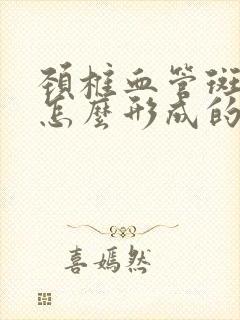 頚椎血管斑
怎麼形成的
喜嫣然